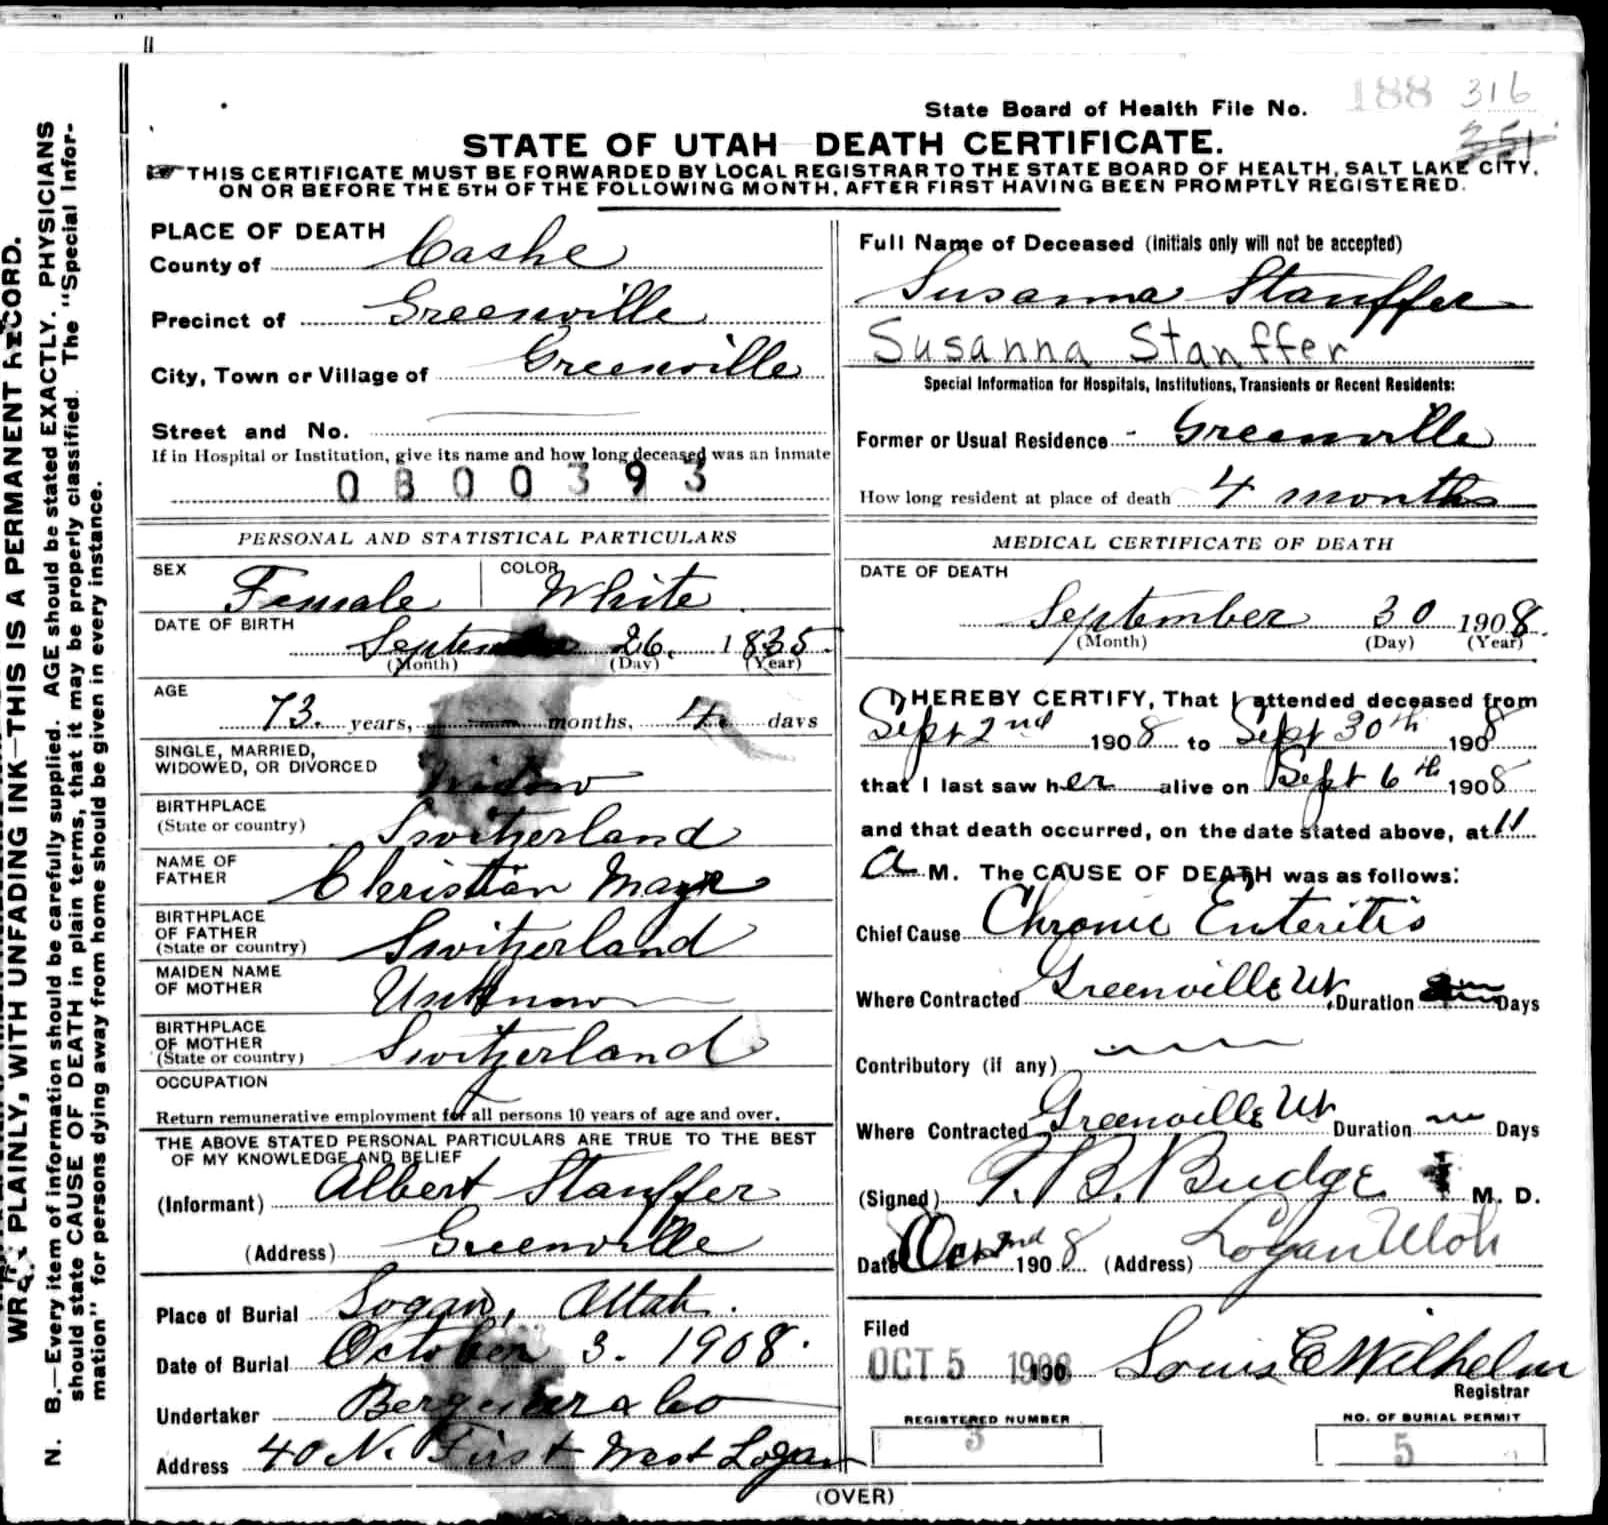 State Board of Health File No. 188 316
351
STATE OF UTAH DEATH CERTIFICATE.
THIS CERTIFICATE MUST BE FORWARDED BY LOCAL REGISTRAR TO THE STATE BOARD OF HEALTH, SALT LAKE CITY,
ON OR BEFORE THE 5TH OF THE FOLLOWING MONTH, AFTER FIRST HAVING BEEN PROMPTLY REGISTERED.
PLAINLY, WITH UNFADING INK—THIS IS A PERMANENT RECORD.
N. B.—Every item of information should be carefully supplied. AGE should be stated EXACTLY. PHYSICIANS
should state CAUSE OF DEATH in plain terms, that it may be properly classified. The "Special Infor-
mation" for persons dying away from home should be given in every instance.
PLACE OF DEATH
County of Cashe
Precinct of Greenville
City, Town or Village of Greenville
Street and No.
If in Hospital or Institution, give its name and how long deceased was an inmate
0300393
PERSONAL AND STATISTICAL PARTICULARS
SEX Female COLOR White
DATE OF BIRTH
September 26. 1835.
(Month) (Day) (Year)
AGE
73. years, months, 4 days
SINGLE, MARRIED,
WIDOWED, OR DIVORCED Widow
BIRTHPLACE
(State or country) Switzerland
NAME OF
FATHER Christian Mayr
BIRTHPLACE
OF FATHER
(State or country) Switzerland
MAIDEN NAME
OF MOTHER Unknown
BIRTHPLACE
OF MOTHER
(State or country) Switzerland
OCCUPATION
Return remunerative employment for all persons 10 years of age and over.
THE ABOVE STATED PERSONAL PARTICULARS ARE TRUE TO THE BEST
OF MY KNOWLEDGE AND BELIEF
(Informant) Albert Stauffer
(Address) Greenville
Place of Burial Logan, Utah.
Date of Burial October 3. 1908.
Undertaker & Co
Address 40 N. First West Logan
Full Name of Deceased (Initials only will not be accepted)
Susanna Stauffer
Susanna Stanffer
Special Information for Hospitals, Institutions, Transients or Recent Residents:
Former or Usual Residence Greenville
How long resident at place of death 4 months
MEDICAL CERTIFICATE OF DEATH
DATE OF DEATH
September 30 1908.
(Month) (Day) (Year)
I HEREBY CERTIFY, That I attended deceased from
Sept 2nd 1908 to Sept 30th 1908
that I last saw her alive on Sept 6th 1908
and that death occurred, on the date stated above, at 11
A M. The CAUSE OF DEATH was as follows:
Chief Cause Chronic Enteritis
Where Contracted Greenville Ut Duration Days
Contributory (if any)
Where Contracted Greenville Ut Duration Days
(Signed) T. B. Budge M. D.
Date Oct 2nd 1908 (Address) Logan Utah
Filed
OCT 5 1908 190 Louis E Wilhelm
Registrar
REGISTERED NUMBER
3
NO. OF BURIAL PERMIT
5
(OVER)